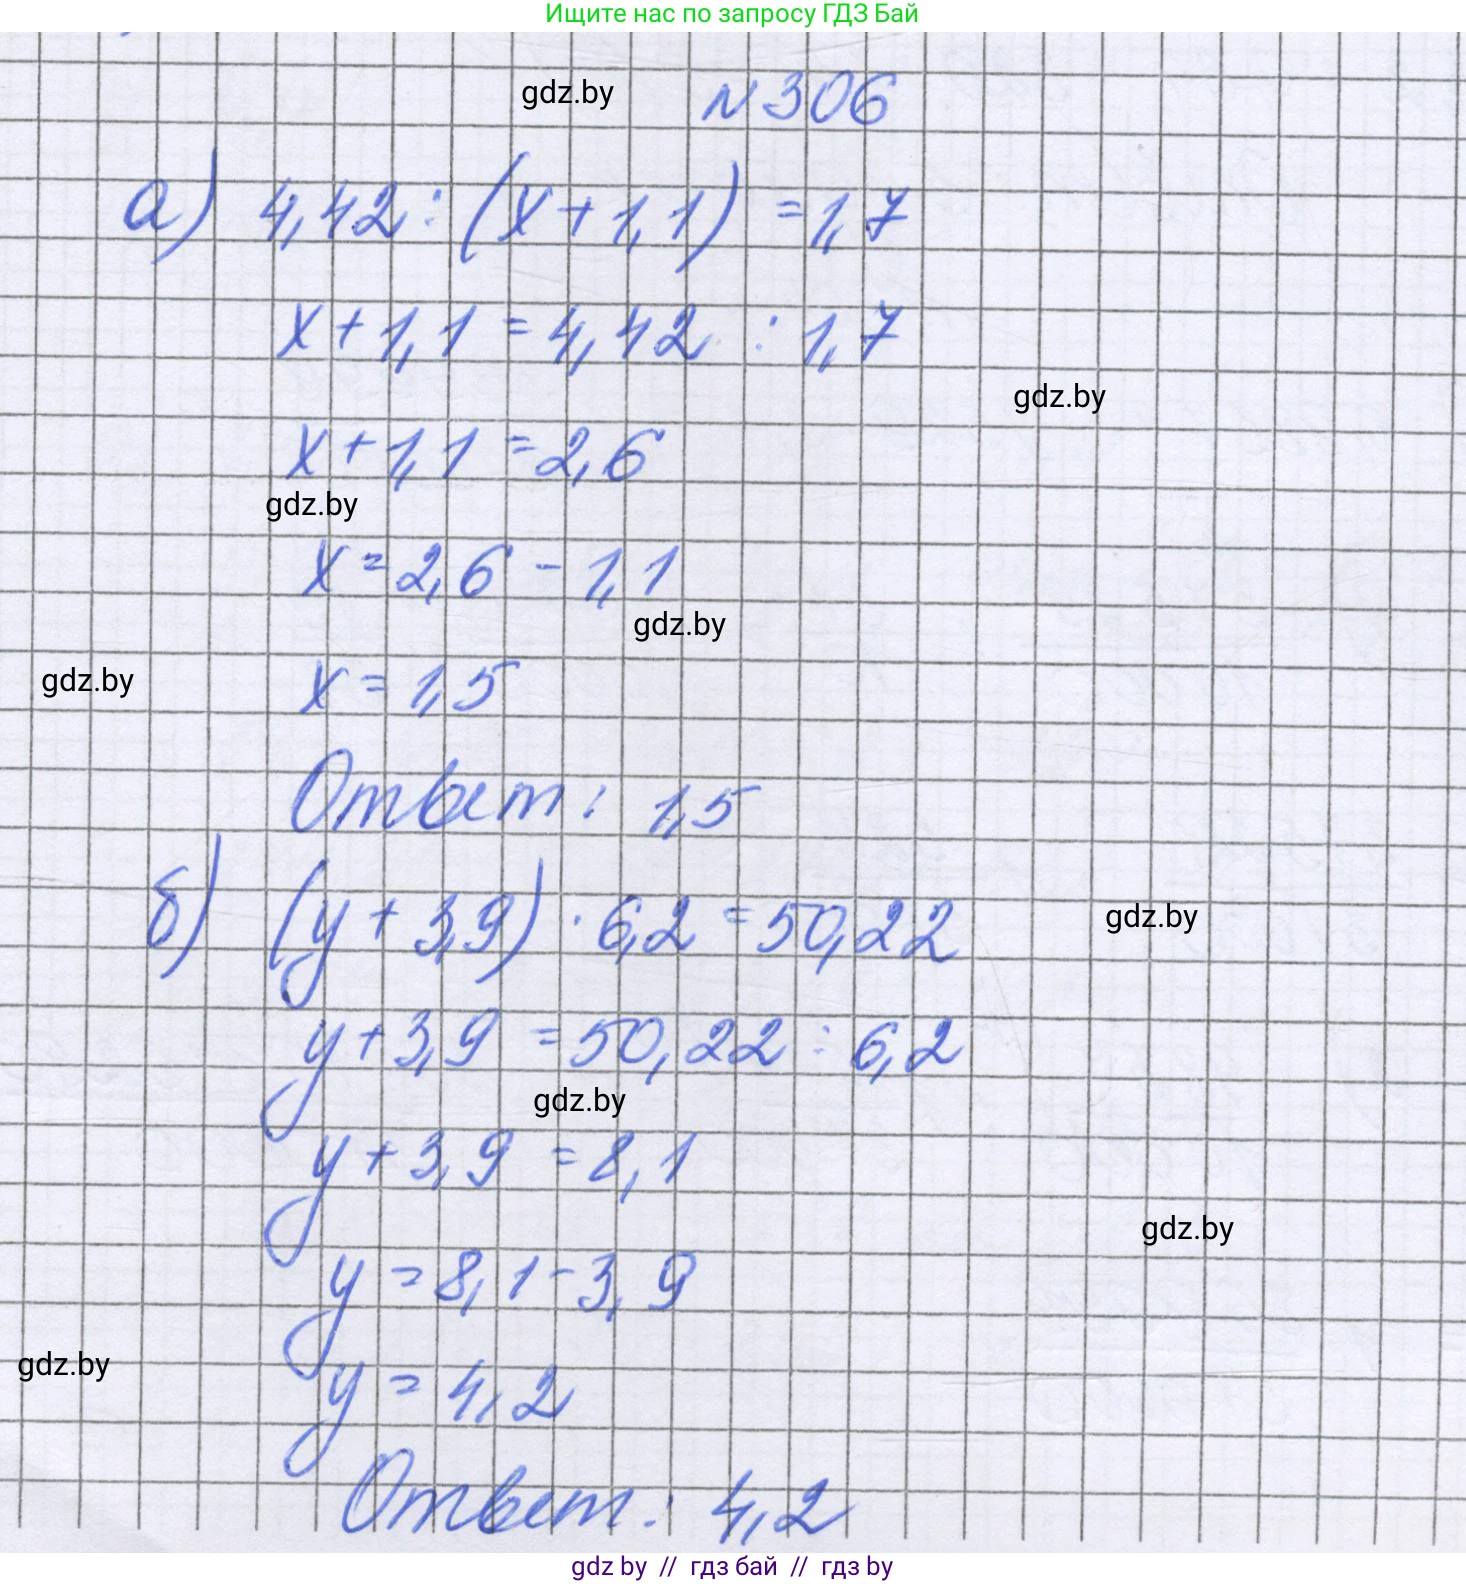 Ищите нас по запросу ГДЗ Бай
gdz.by
N 306
а) 4,42 : (x + 1,1) = 1,7
x + 1,1 = 4,42 : 1,7
gdz.by
x + 1,1 = 2,6
gdz.by
x = 2,6 - 1,1
gdz.by
gdz.by
x = 1,5
Ответ: 1,5
б) (y + 3,9) · 6,2 = 50,22
gdz.by
y + 3,9 = 50,22 : 6,2
gdz.by
y + 3,9 = 8,1
gdz.by
y = 8,1 - 3,9
gdz.by
y = 4,2
Ответ: 4,2
gdz by // гдз бай // гдз by